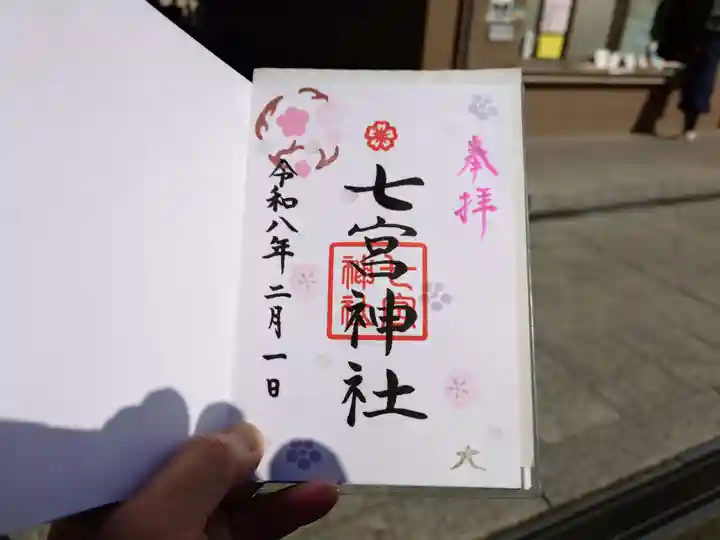 奉拝
七宮神社
七宮神社
令和八年二月一日